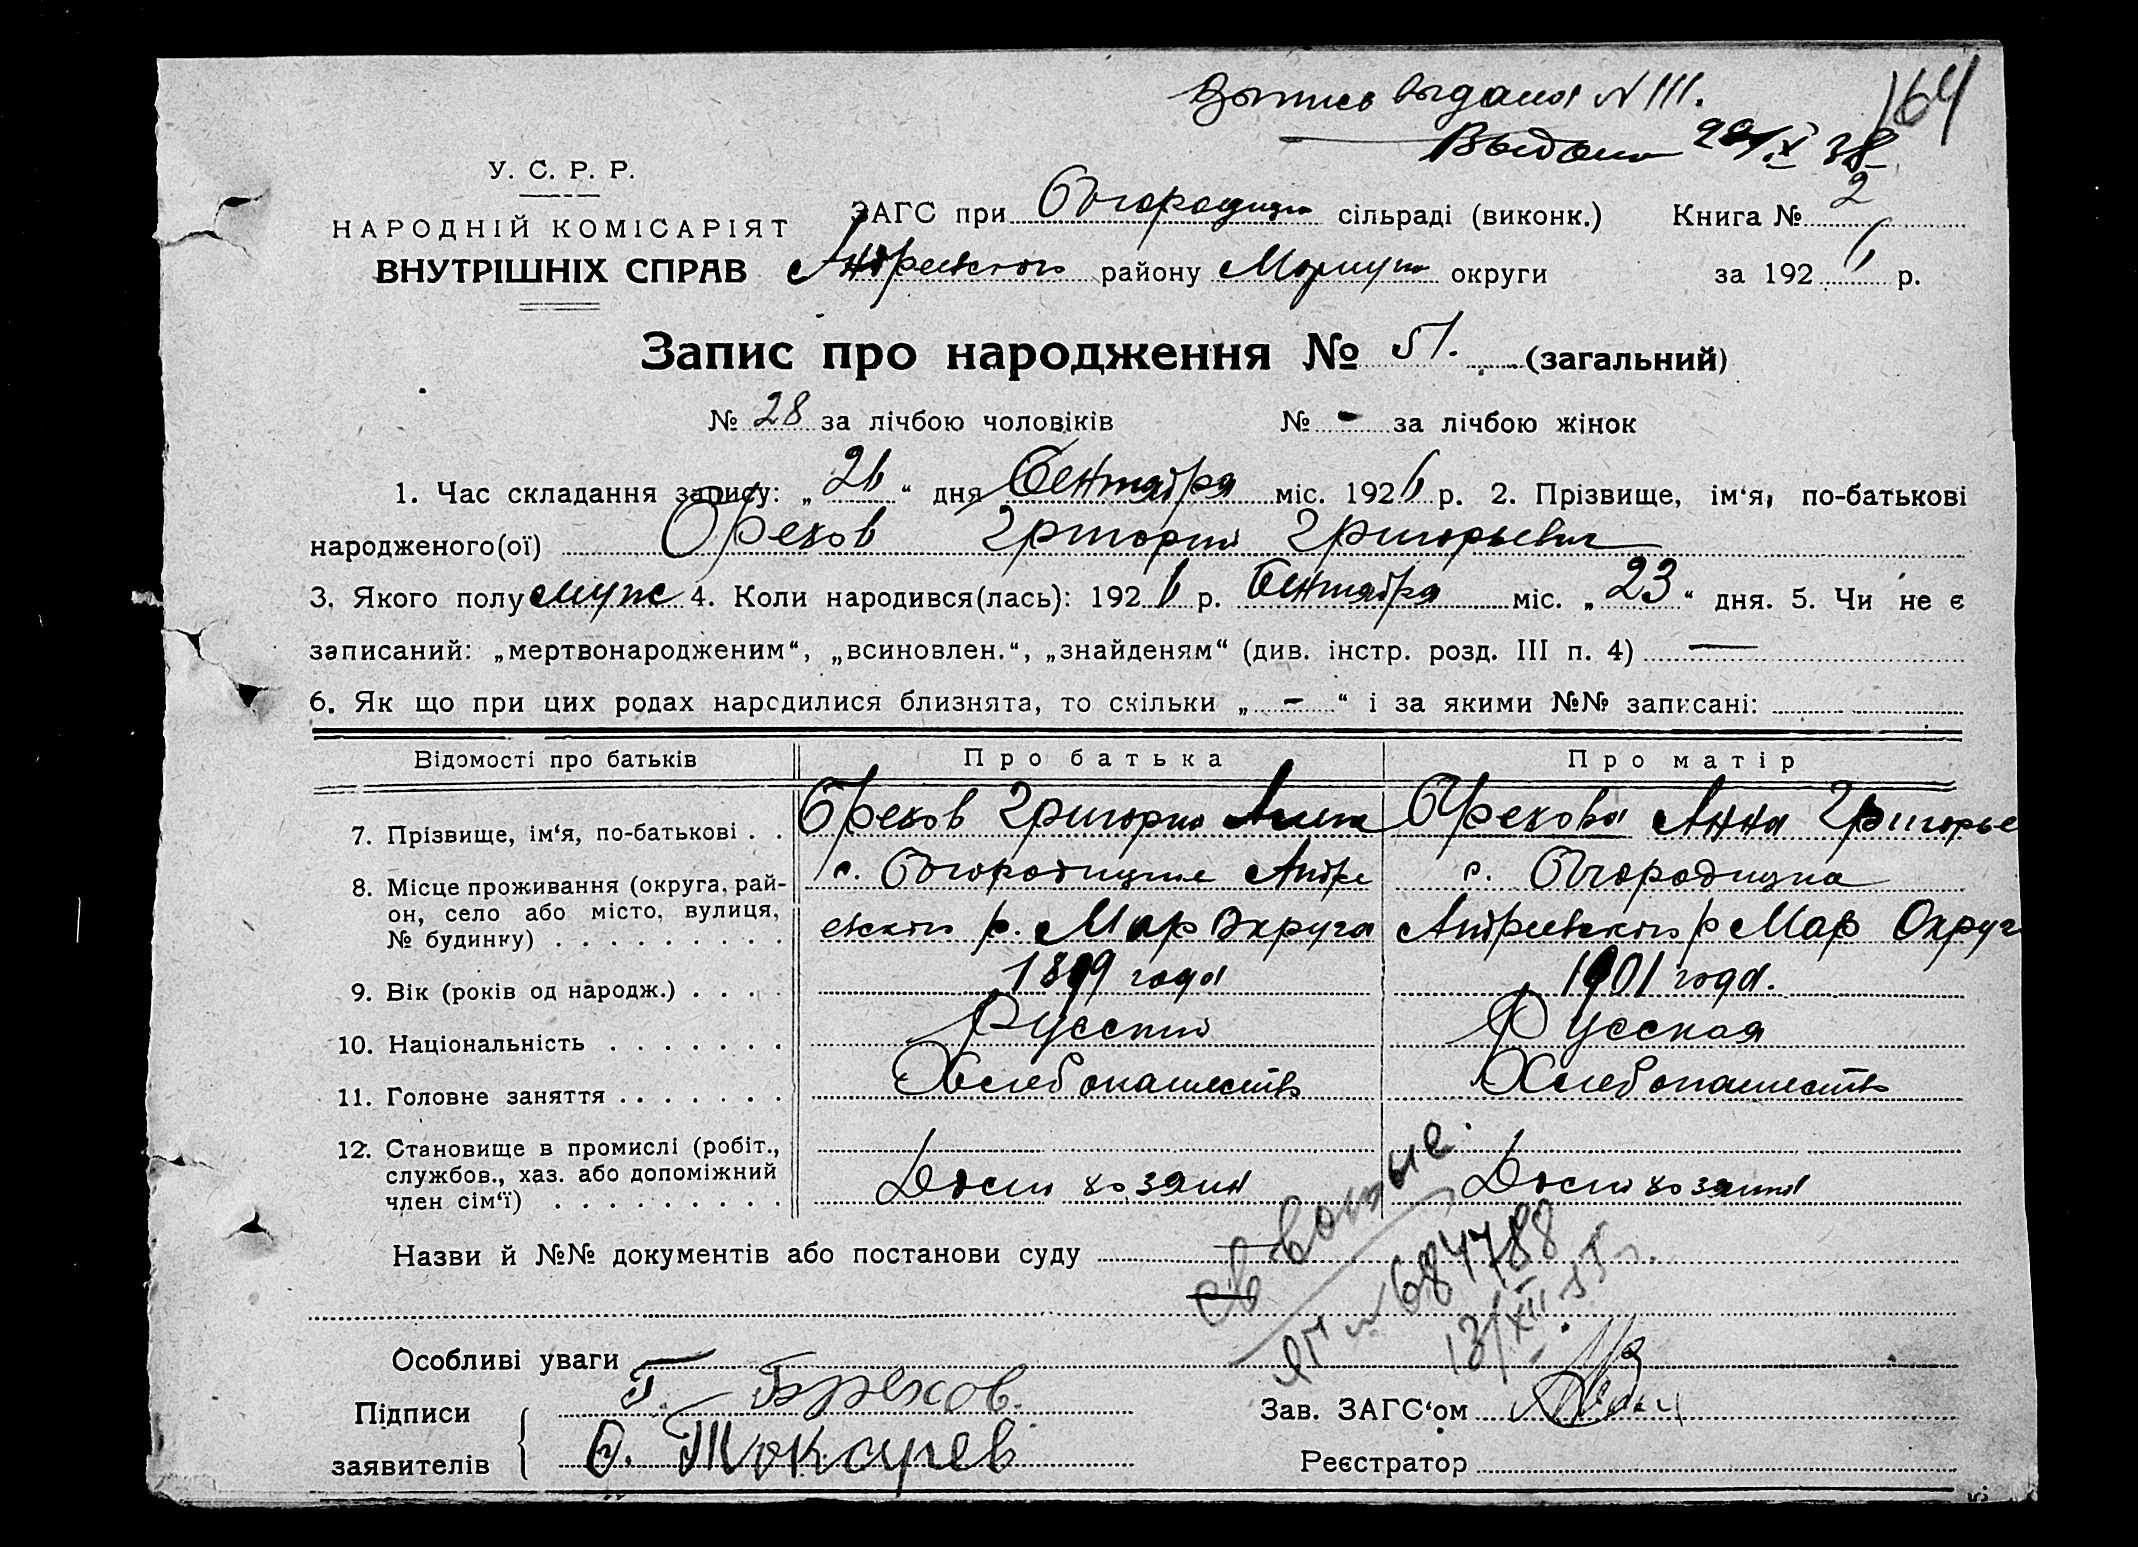 Выпись выдана N 111.
164
Выдано 29/XI 38
У. С. Р. Р.
НАРОДНІЙ КОМІСАРІЯТ
ВНУТРІШНІХ СПРАВ
ЗАГС при сільраді (виконк.) Книга № 2
Андреевского району Мариуп округи за 1926 р.
Запис про народження № 51. (загальний)
№ 28 за лічбою чоловіків № - за лічбою жінок
1. Час складання запису: „26“ дня Сентября міс. 1926 р. 2. Прізвище, ім‘я, по-батькові
народженого(ої) Орехов Григорий Григорьевич
3. Якого полу муж 4. Коли народився(лась): 1926 р. Сентября міс. „23“ дня. 5. Чи не є
записаний: „мертвонародженим“, „всиновлен.“, „знайденям“ (див. інстр. розд. III п. 4) —
6. Як що при цих родах народилися близнята, то скільки „-“ і за якими №№ записані:
Відомості про батьків Про батька Про матір
7. Прізвище, ім‘я, по-батькові . . Орехов Григорий Орехова Анна Григорье
8. Місце проживання (округа, рай- с. Андре с.
он, село або місто, вулиця, евского р. Мар Округа Андреевского р Мар Округ
№ будинку) . . . . . . . . .
9. Вік (років од народж.) . . . . 1899 года 1901 года.
10. Національність . . . . . . . Русский Русская
11. Головне заняття . . . . . . . Хлебопашеств Хлебопашеств
12. Становище в промислі (робіт.,
службов., хаз. або допоміжний Дом хозяин Дом хозяина
член сім‘ї) . . . . . . . . .
Назви й №№ документів або постанови суду
св
ЯГ № 684788
13/XII 55 г.
Особливі уваги —
Підписи Г. Орехов. Зав. ЗАГС‘ом
заявителів Токарев Реєстратор